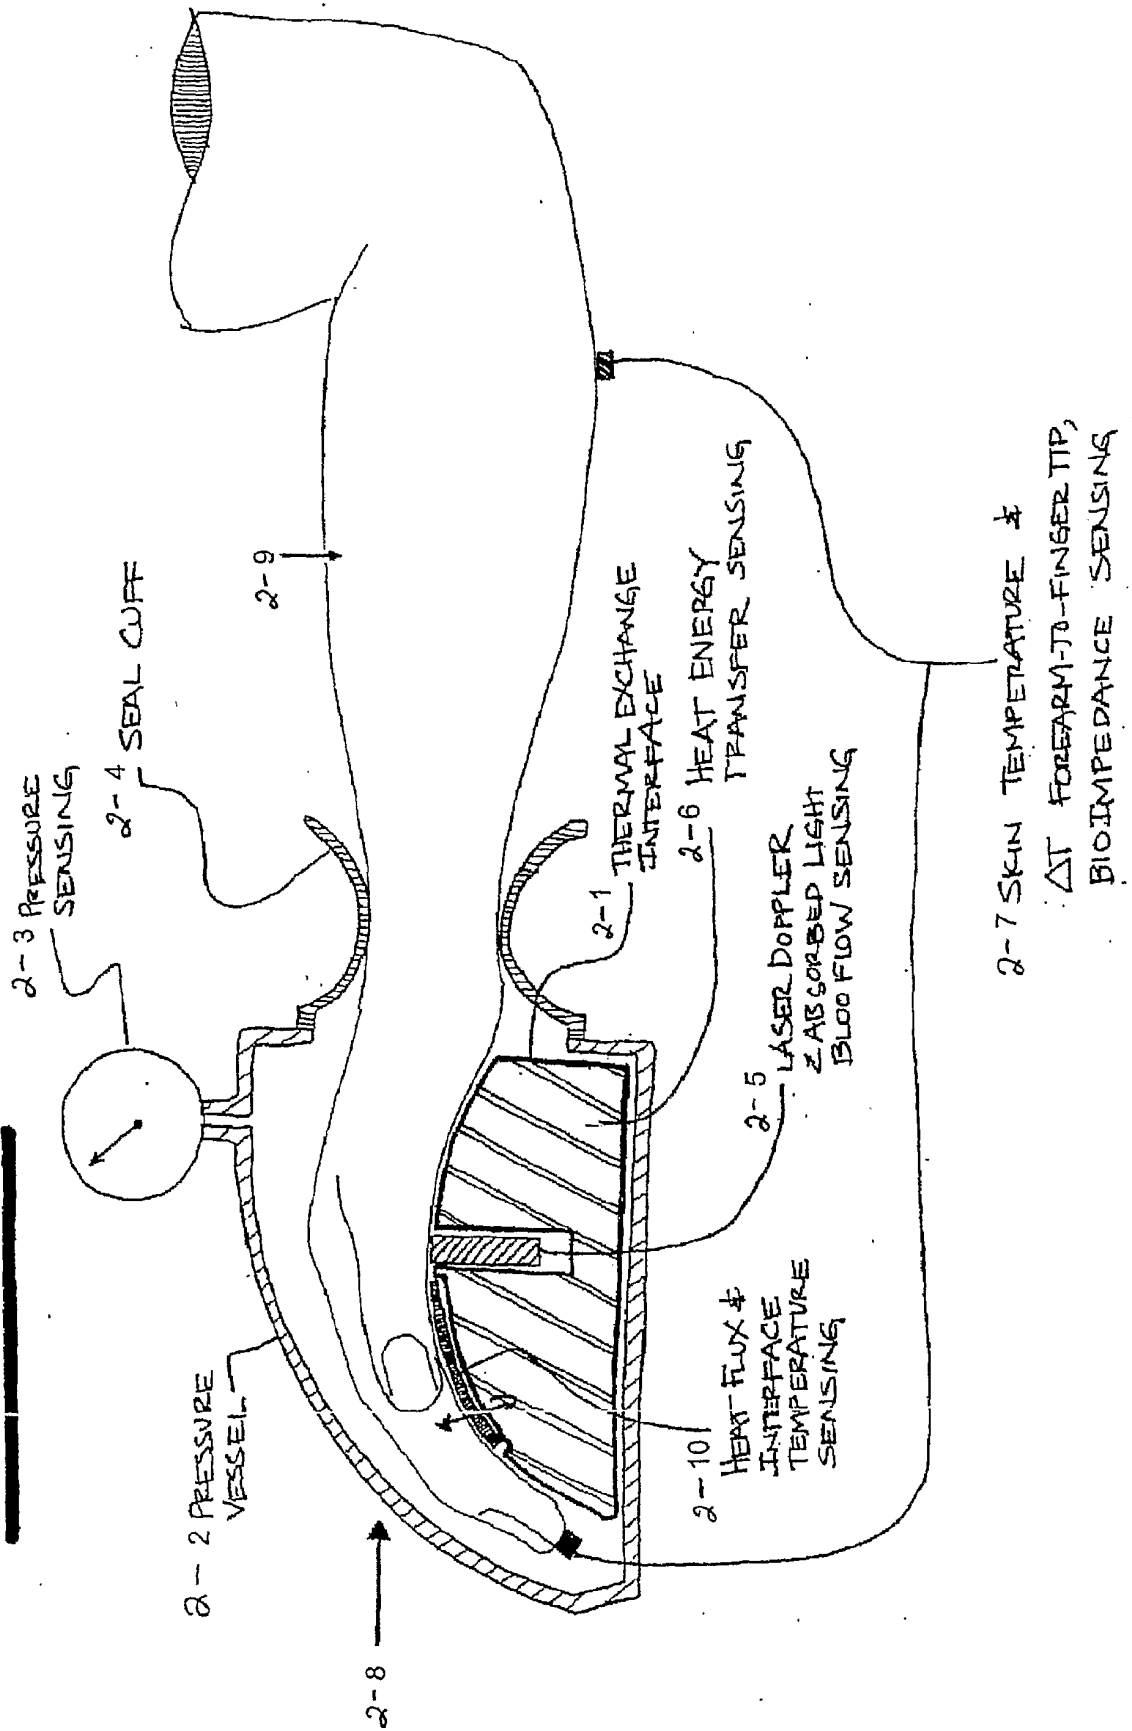 2-3 PRESSURE
SENSING
2-4 SEAL CUFF
2-9
2-2 PRESSURE
VESSEL
2-8
2-1 THERMAL EXCHANGE
INTERFACE
2-6 HEAT ENERGY
TRANSFER SENSING
2-5 LASER DOPPLER
& ABSORBED LIGHT
BLOO FLOW SENSING
2-101
HEAT FLUX &
INTERFACE
TEMPERATURE
SENSING
2-7 SKIN TEMPERATURE &
ΔT FOREARM-TO-FINGER TIP,
BIOIMPEDANCE SENSING